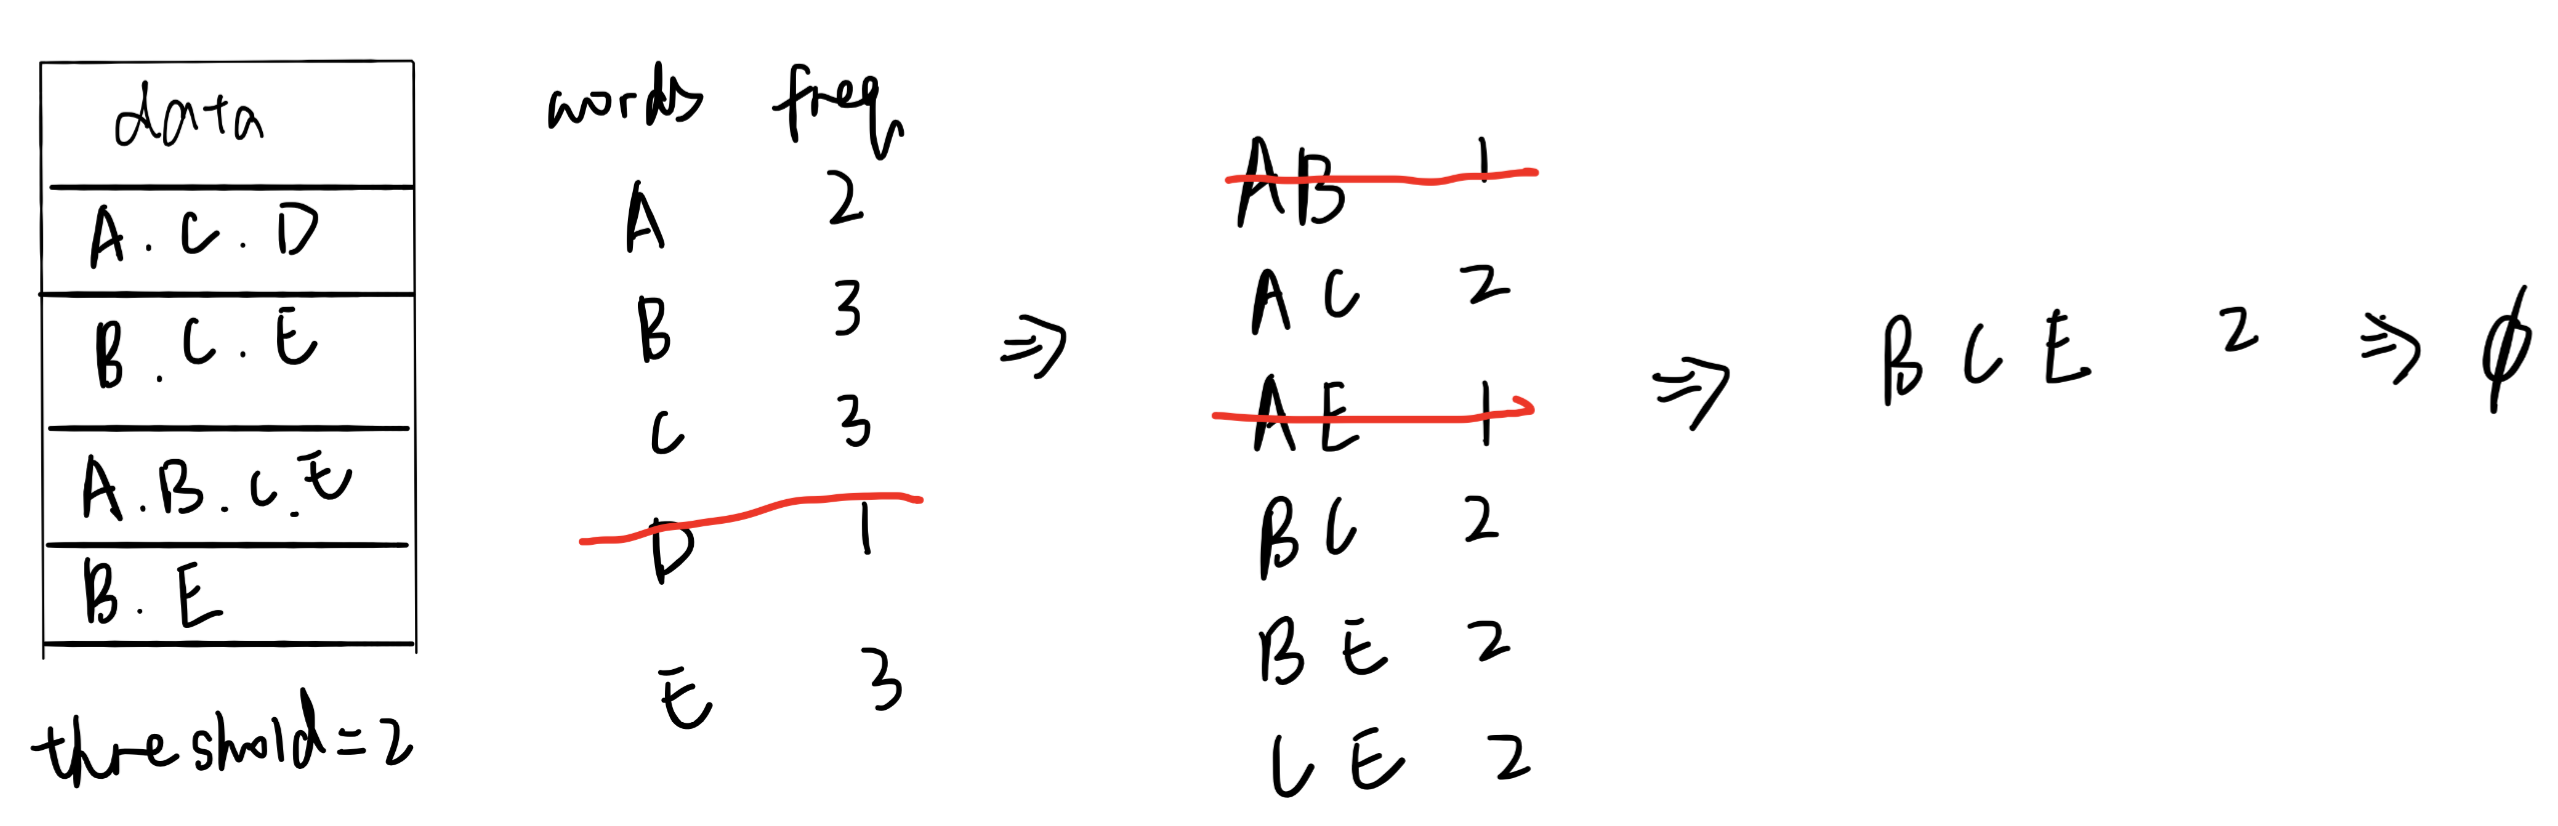 data
A.C.D
B.C.E
A.B.C.E
B.E
threshold=2
words freq
A 2
B 3
C 3
D 1
E 3
⇒
AB 1
AC 2
AE 1
BC 2
BE 2
CE 2
⇒
BCE 2
⇒ ϕ